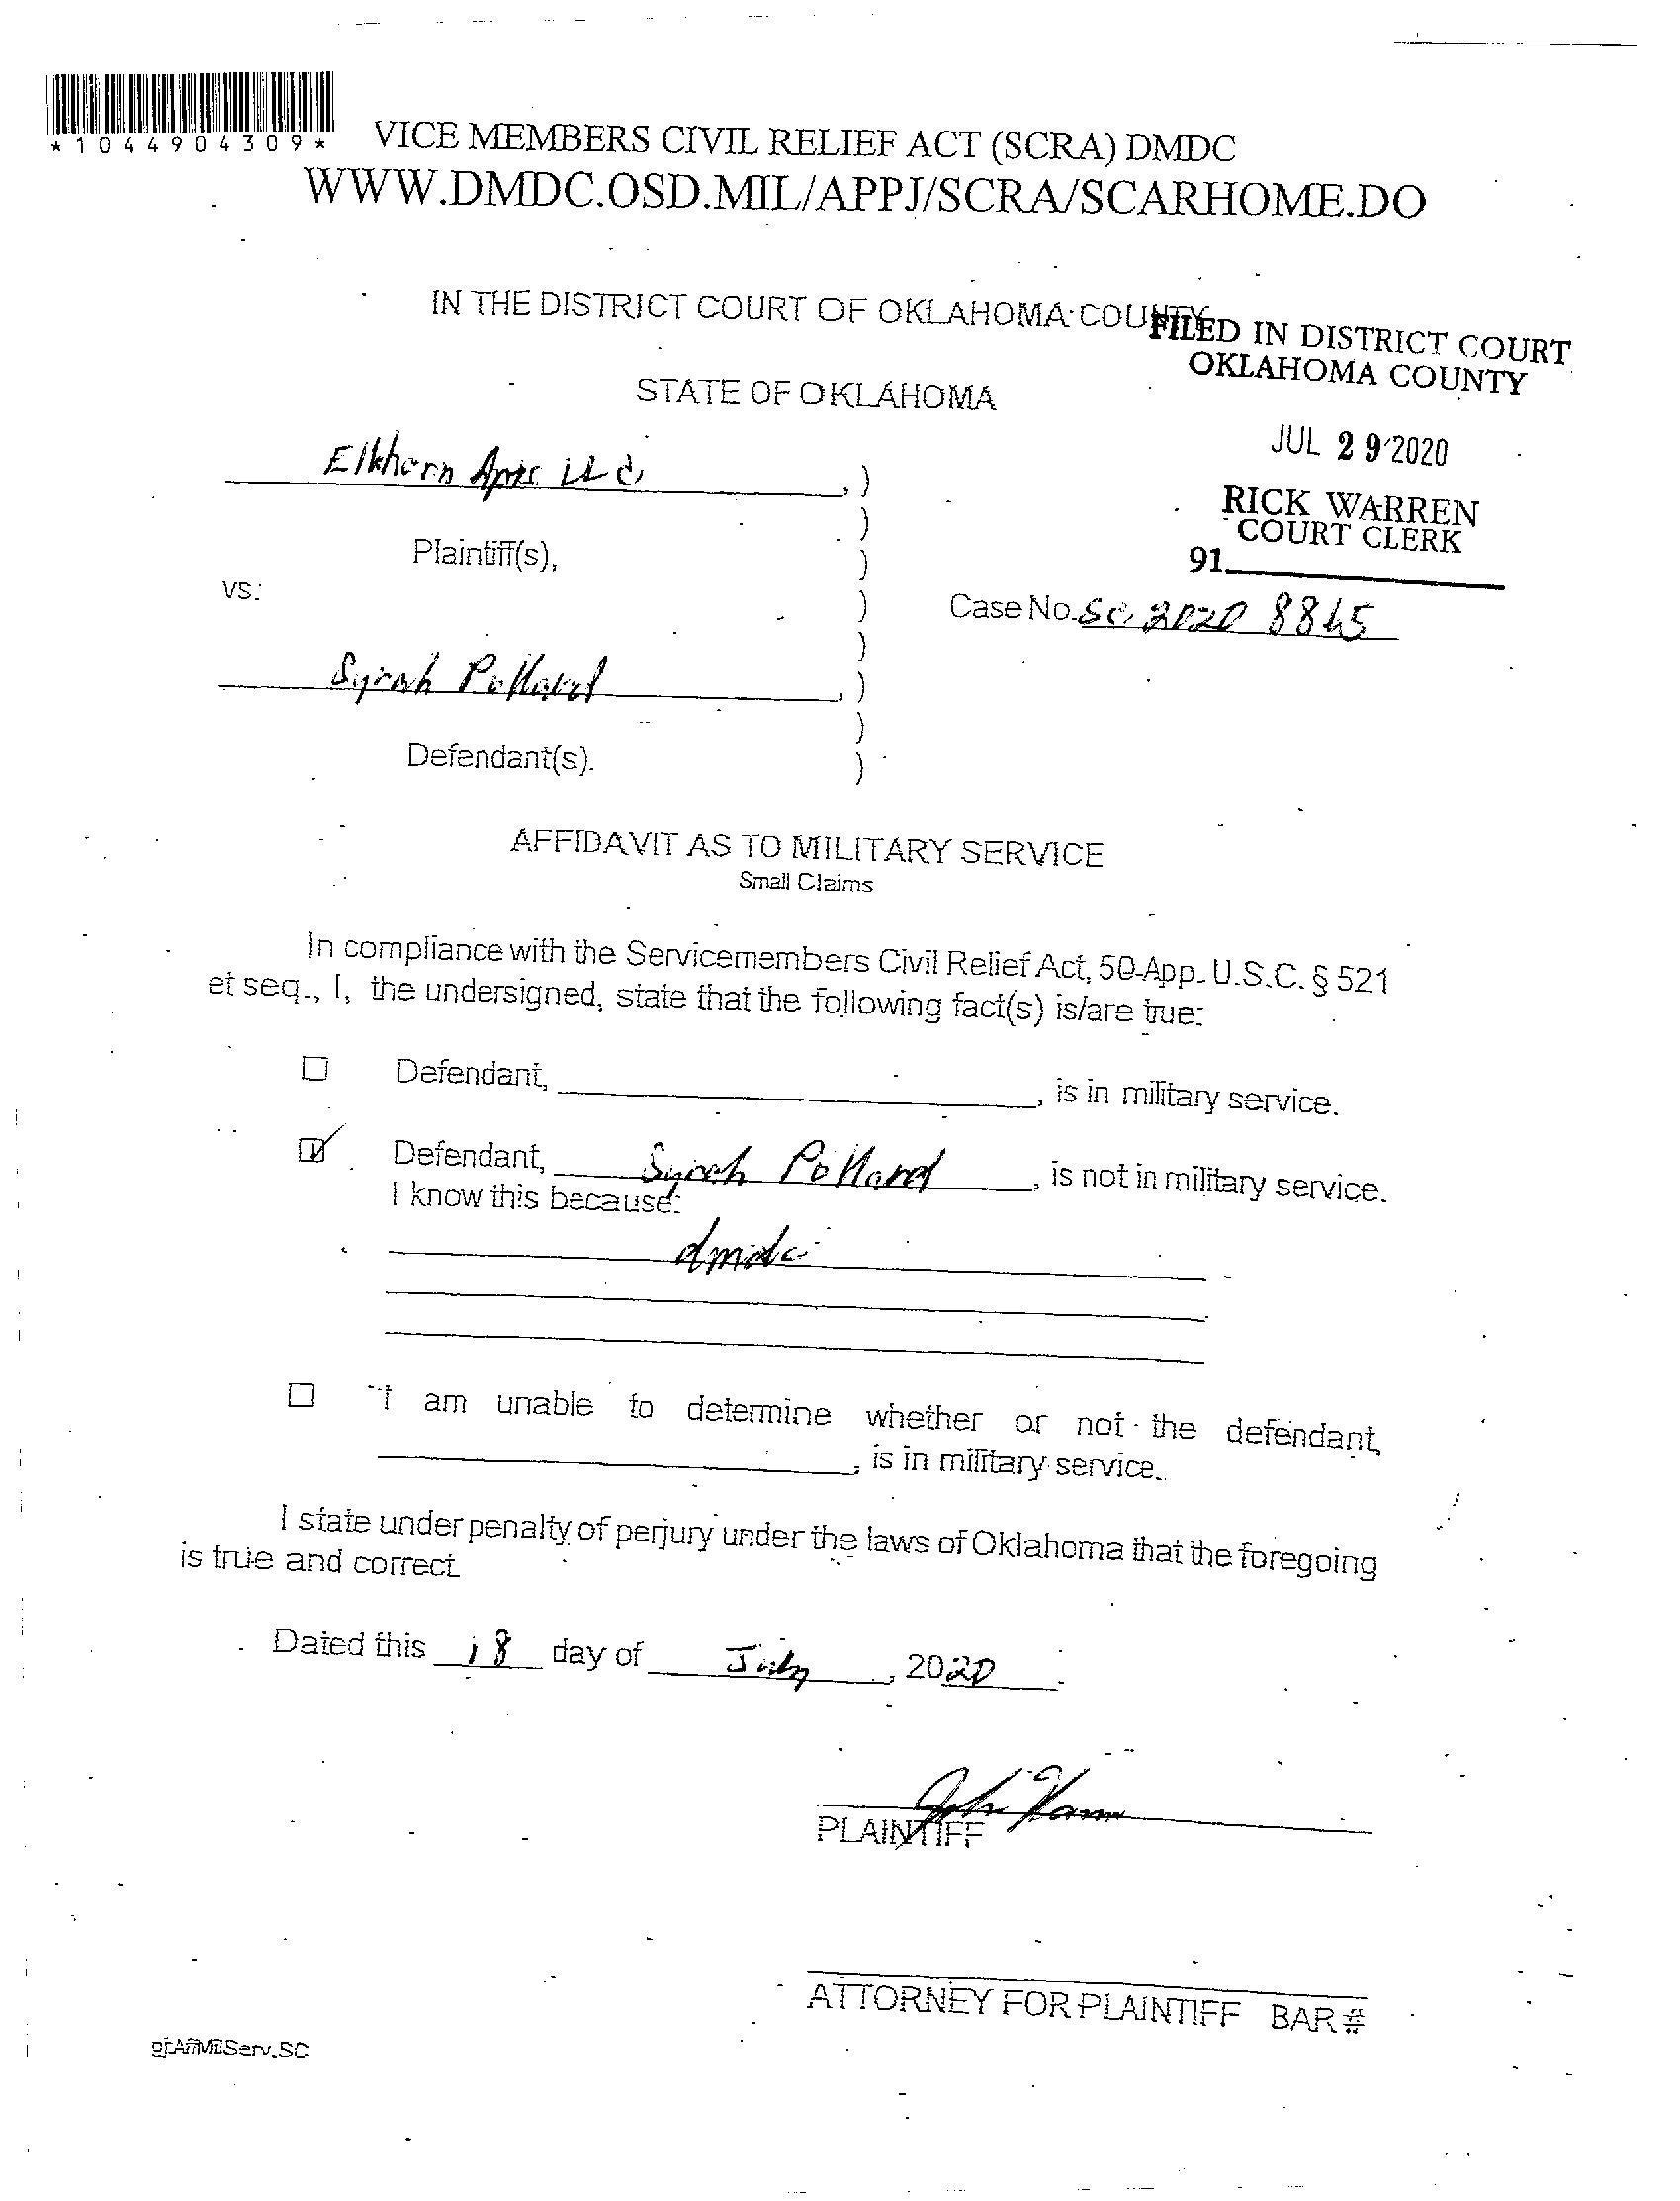 *1044904309*
VICE MEMBERS CIVIL RELIEF ACT (SCRA) DMDC
WWW.DMDC.OSD.MIL/APPJ/SCRA/SCARHOME.DO
IN THE DISTRICT COURT OF OKLAHOMA COUNTY
FILED IN DISTRICT COURT
OKLAHOMA COUNTY
STATE OF OKLAHOMA
JUL 29 2020
Elkhorn Apts. LLC, )
RICK WARREN
COURT CLERK
Plaintiff(s), )
91
vs. )
Case No. SC 2020 8865
Syrah Pollard, )
Defendant(s). )
AFFIDAVIT AS TO MILITARY SERVICE
Small Claims
In compliance with the Servicemembers Civil Relief Act, 50 App. U.S.C. § 521
et seq., I, the undersigned, state that the following fact(s) is/are true:
☐ Defendant, , is in military service.
☑ Defendant, Syrah Pollard, is not in military service.
I know this because:
dmdc
☐ I am unable to determine whether or not the defendant,
, is in military service.
I state under penalty of perjury under the laws of Oklahoma that the foregoing
is true and correct.
Dated this 18 day of July, 2020.
John
PLAINTIFF
ATTORNEY FOR PLAINTIFF BAR #